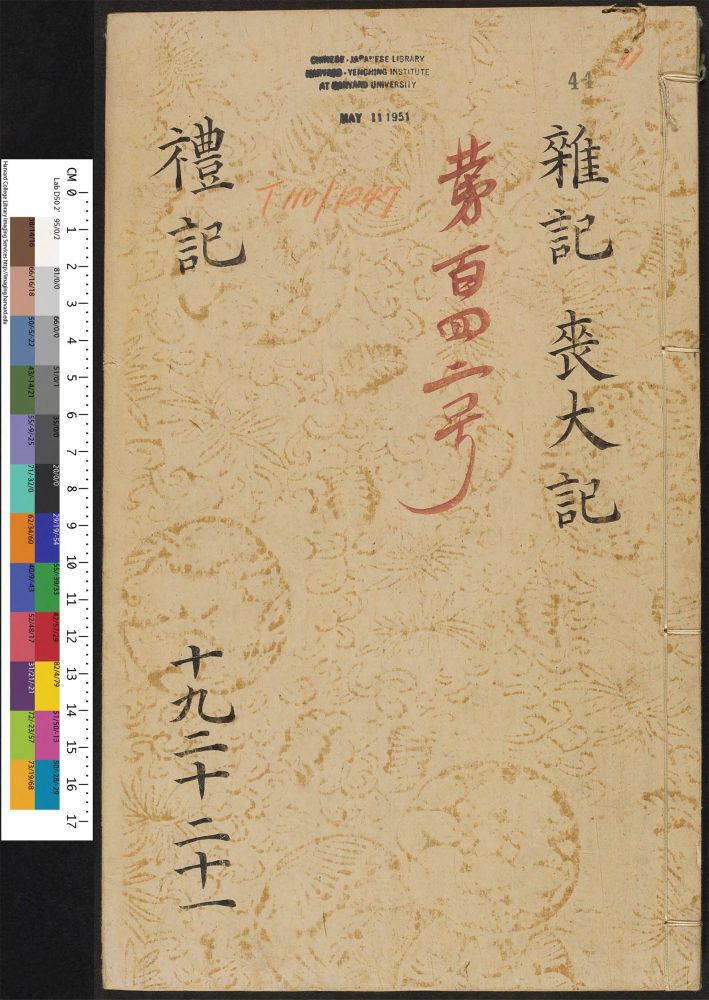 CHINESE-JAPANESE LIBRARY
HARVARD-YENCHING INSTITUTE
AT HARVARD UNIVERSITY
MAY 11 1951
44
雜記 喪大記
第百四二号
T 110/1247
禮記
十九 二十 二十一
CM 0 1 2 3 4 5 6 7 8 9 10 11 12 13 14 15 16 17
Lab D50 2°
95/0/2
81/0/0
66/0/0
51/0/1
35/0/0
20/0/0
29/19/-54
55/-39/33
42/57/29
82/4/79
51/50/-13
50/-28/-29
38/14/16
66/16/18
50/-5/-22
43/-14/21
55/9/-25
71/-32/0
62/34/60
40/9/-43
52/48/17
31/21/-21
72/-23/57
73/19/68
Harvard College Library Imaging Services